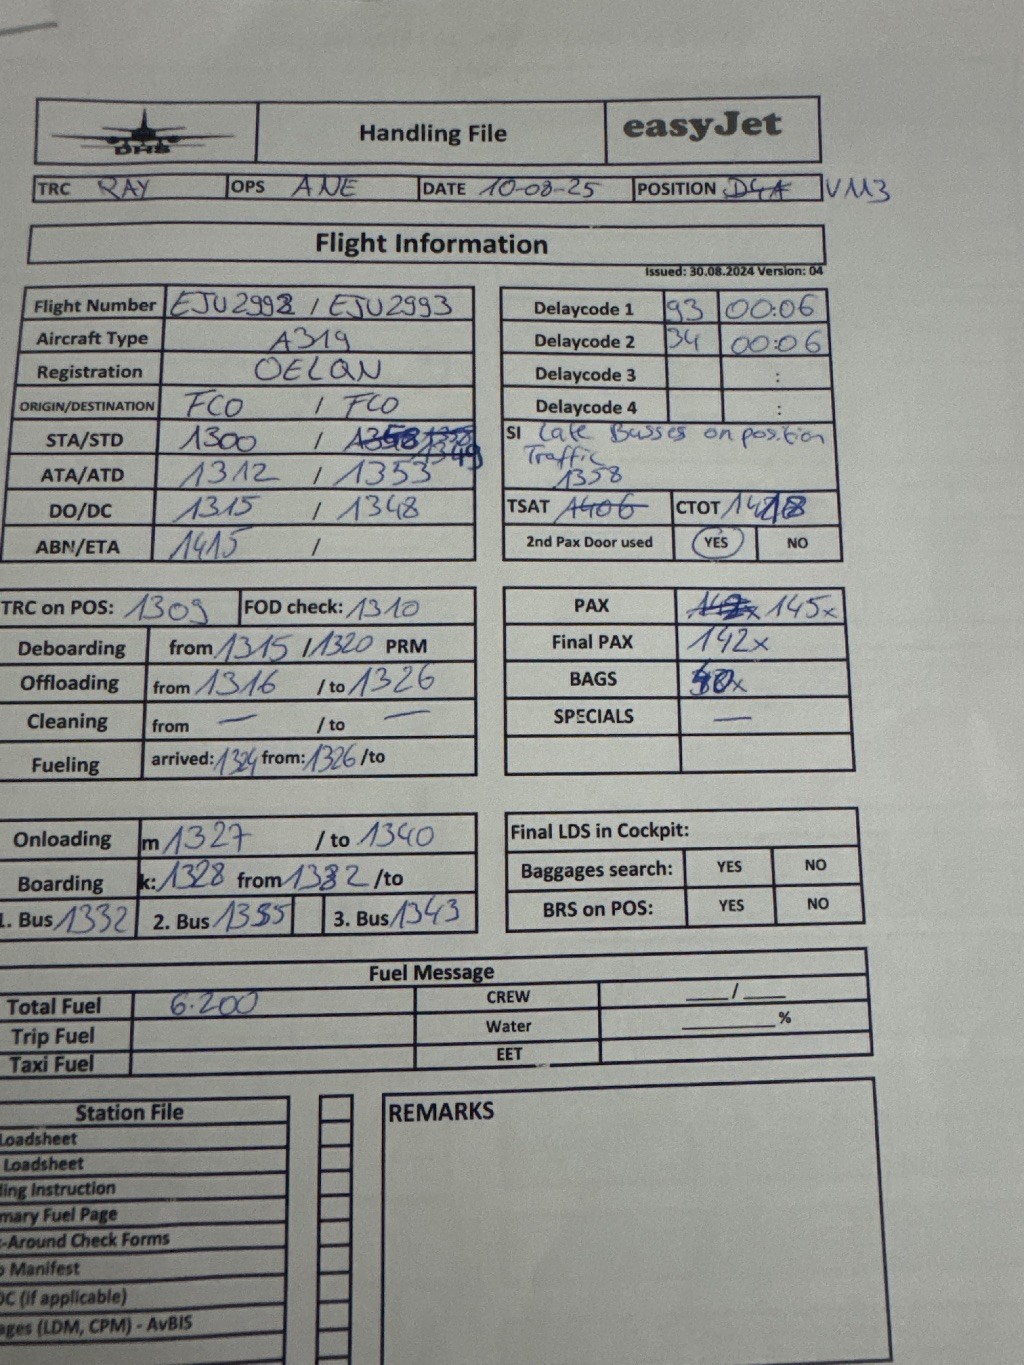 DHS
Handling File
easyJet
TRC RAY OPS ANE DATE 10-08-25 POSITION D4A V113
Flight Information
Issued: 30.08.2024 Version: 04
Flight Number EJU2992 / EJU2993
Aircraft Type A319
Registration OELQN
ORIGIN/DESTINATION FCO / FCO
STA/STD 1300 / 1349
ATA/ATD 1312 / 1353
DO/DC 1315 / 1348
ABN/ETA 1415 /
Delaycode 1 93 00:06
Delaycode 2 34 00:06
Delaycode 3 :
Delaycode 4 :
SI Late Busses on position
Traffic
1358
TSAT 1406 CTOT
2nd Pax Door used YES NO
TRC on POS: 1309 FOD check: 1310
Deboarding from 1315 / 1320 PRM
Offloading from 1316 / to 1326
Cleaning from — / to —
Fueling arrived: 1324 from: 1326 /to
PAX 145x
Final PAX 142x
BAGS
SPECIALS —
Onloading m 1327 / to 1340
Boarding k: 1328 from 1332 /to
1. Bus 1332 2. Bus 1335 3. Bus 1343
Final LDS in Cockpit:
Baggages search: YES NO
BRS on POS: YES NO
Fuel Message
Total Fuel 6.200 CREW ___/___
Trip Fuel Water ________%
Taxi Fuel EET
Station File
Loadsheet
Loadsheet
ling Instruction
mary Fuel Page
-Around Check Forms
o Manifest
OC (if applicable)
ages (LDM, CPM) - AvBIS
REMARKS